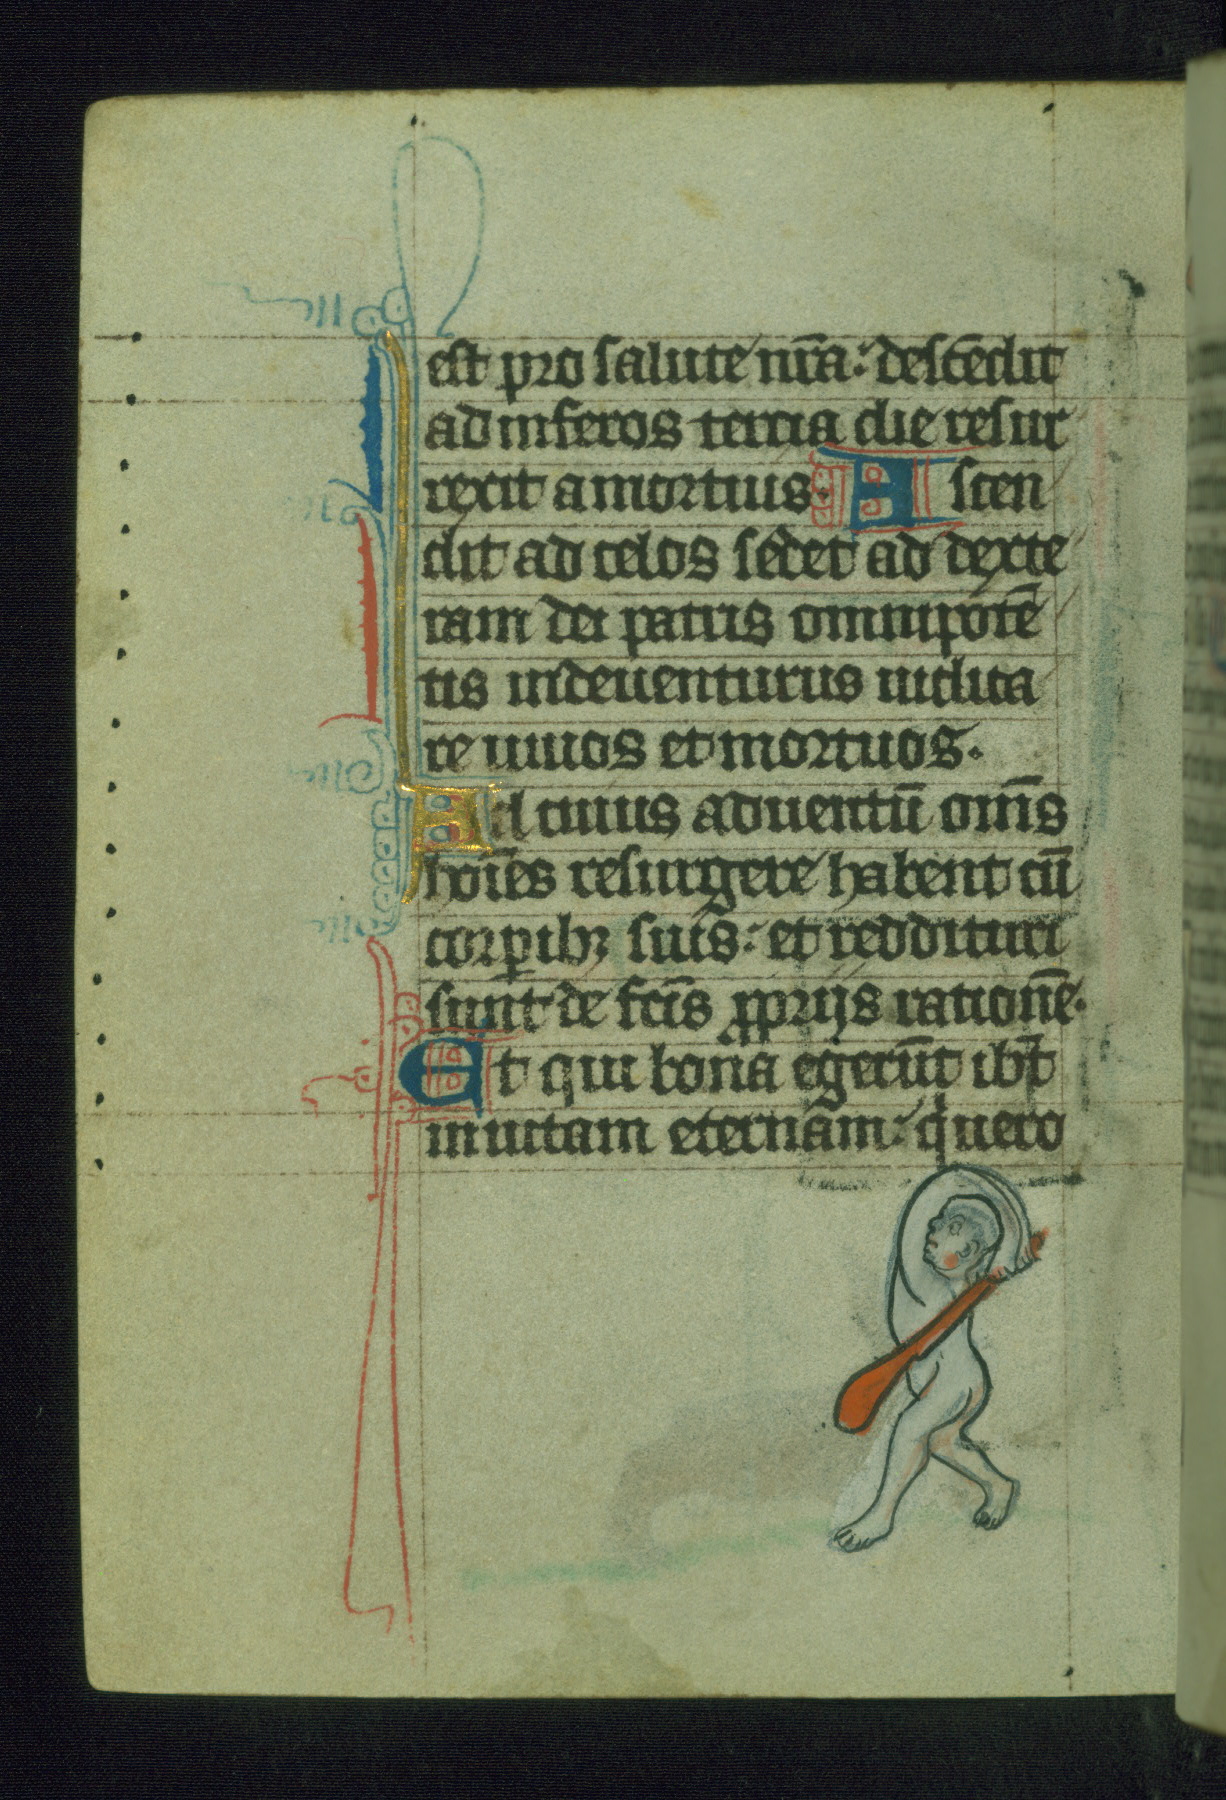 est pro salute nr̄a: descēdit
ad inferos tercia die resur
rexit a mortuis. Ascen
dit ad celos sedet ad dexte
ram dei patris omnipotē
tis inde uenturus iudica
re uiuos et mortuos.
Ad cuius aduentū om̄s
hoīes resurgere habent cū
corꝑibꝫ suis: et reddituri
sunt de fcīs ꝓprijs rationē.
Et qui bona egerūt ibt̄
in uitam eternam: q uero